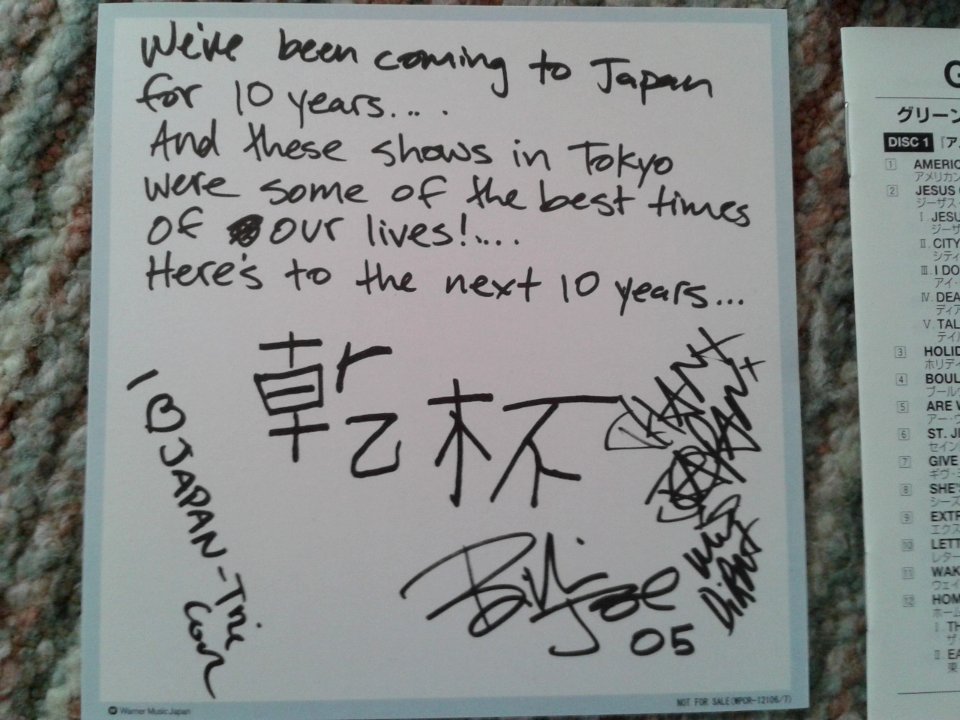 We've been coming to Japan
for 10 years....
And these shows in Tokyo
were some of the best times
of our lives!....
Here's to the next 10 years...
乾杯
I JAPAN - Tré
Cool
Billie Joe
05
Warner Music Japan
NOT FOR SALE (WPCR-12106/7)
G
グリーン
DISC 1 『ア
1 AMERIC
アメリカン
2 JESUS
ジーザス
I. JESU
ジーザ
II. CITY
シティ
III. I DO
アイ・
IV. DEA
ディア
V. TAL
テイル
3 HOLID
ホリデイ
4 BOUL
ブールヴ
5 ARE
アー・
6 ST. JI
セイン
7 GIVE
ギヴ・
8 SHE'
シーズ
9 EXTR
エクス
10 LETT
レター
11 WAK
ウェイ
12 HOM
ホーム
I. TH
ザ
II. EA